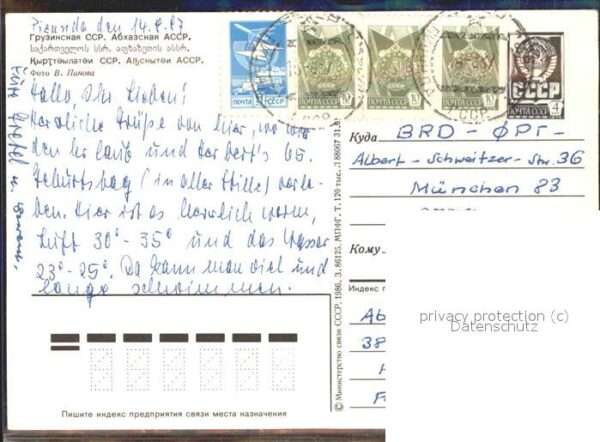 Pizunda den 14.9.87
Грузинская ССР. Абхазская АССР.
საქართველოს სსრ. აფხაზეთის ასსრ.
Қырҭтәылатәи ССР. Аҧснытәи АССР.
Фото В. Панова
Hallo, Ihr Lieben!
Herzliche Grüße von hier, wo wir
den Urlaub und Herbert's 65.
Geburtstag (in aller Stille) verle-
ben. Hier ist es herrlich warm,
Luft 30° - 35° und das Wasser
23° - 25°. Da kann man viel und
lange schwimmen.
Eure u.
ПОЧТА СССР
ПОЧТА СССР 10
ПОЧТА СССР 10
ПОЧТА СССР 10
СССР
ПОЧТА 4
Куда BRD - ФРГ -
Albert - Schweitzer - Str. 36
München 83
Кому
Индекс п
Ab
38
F
privacy protection (c)
Datenschutz
© Министерство связи СССР. 1986. З. 86125. МПФГ. Т. 120 тыс.
Пишите индекс предприятия связи места назначения